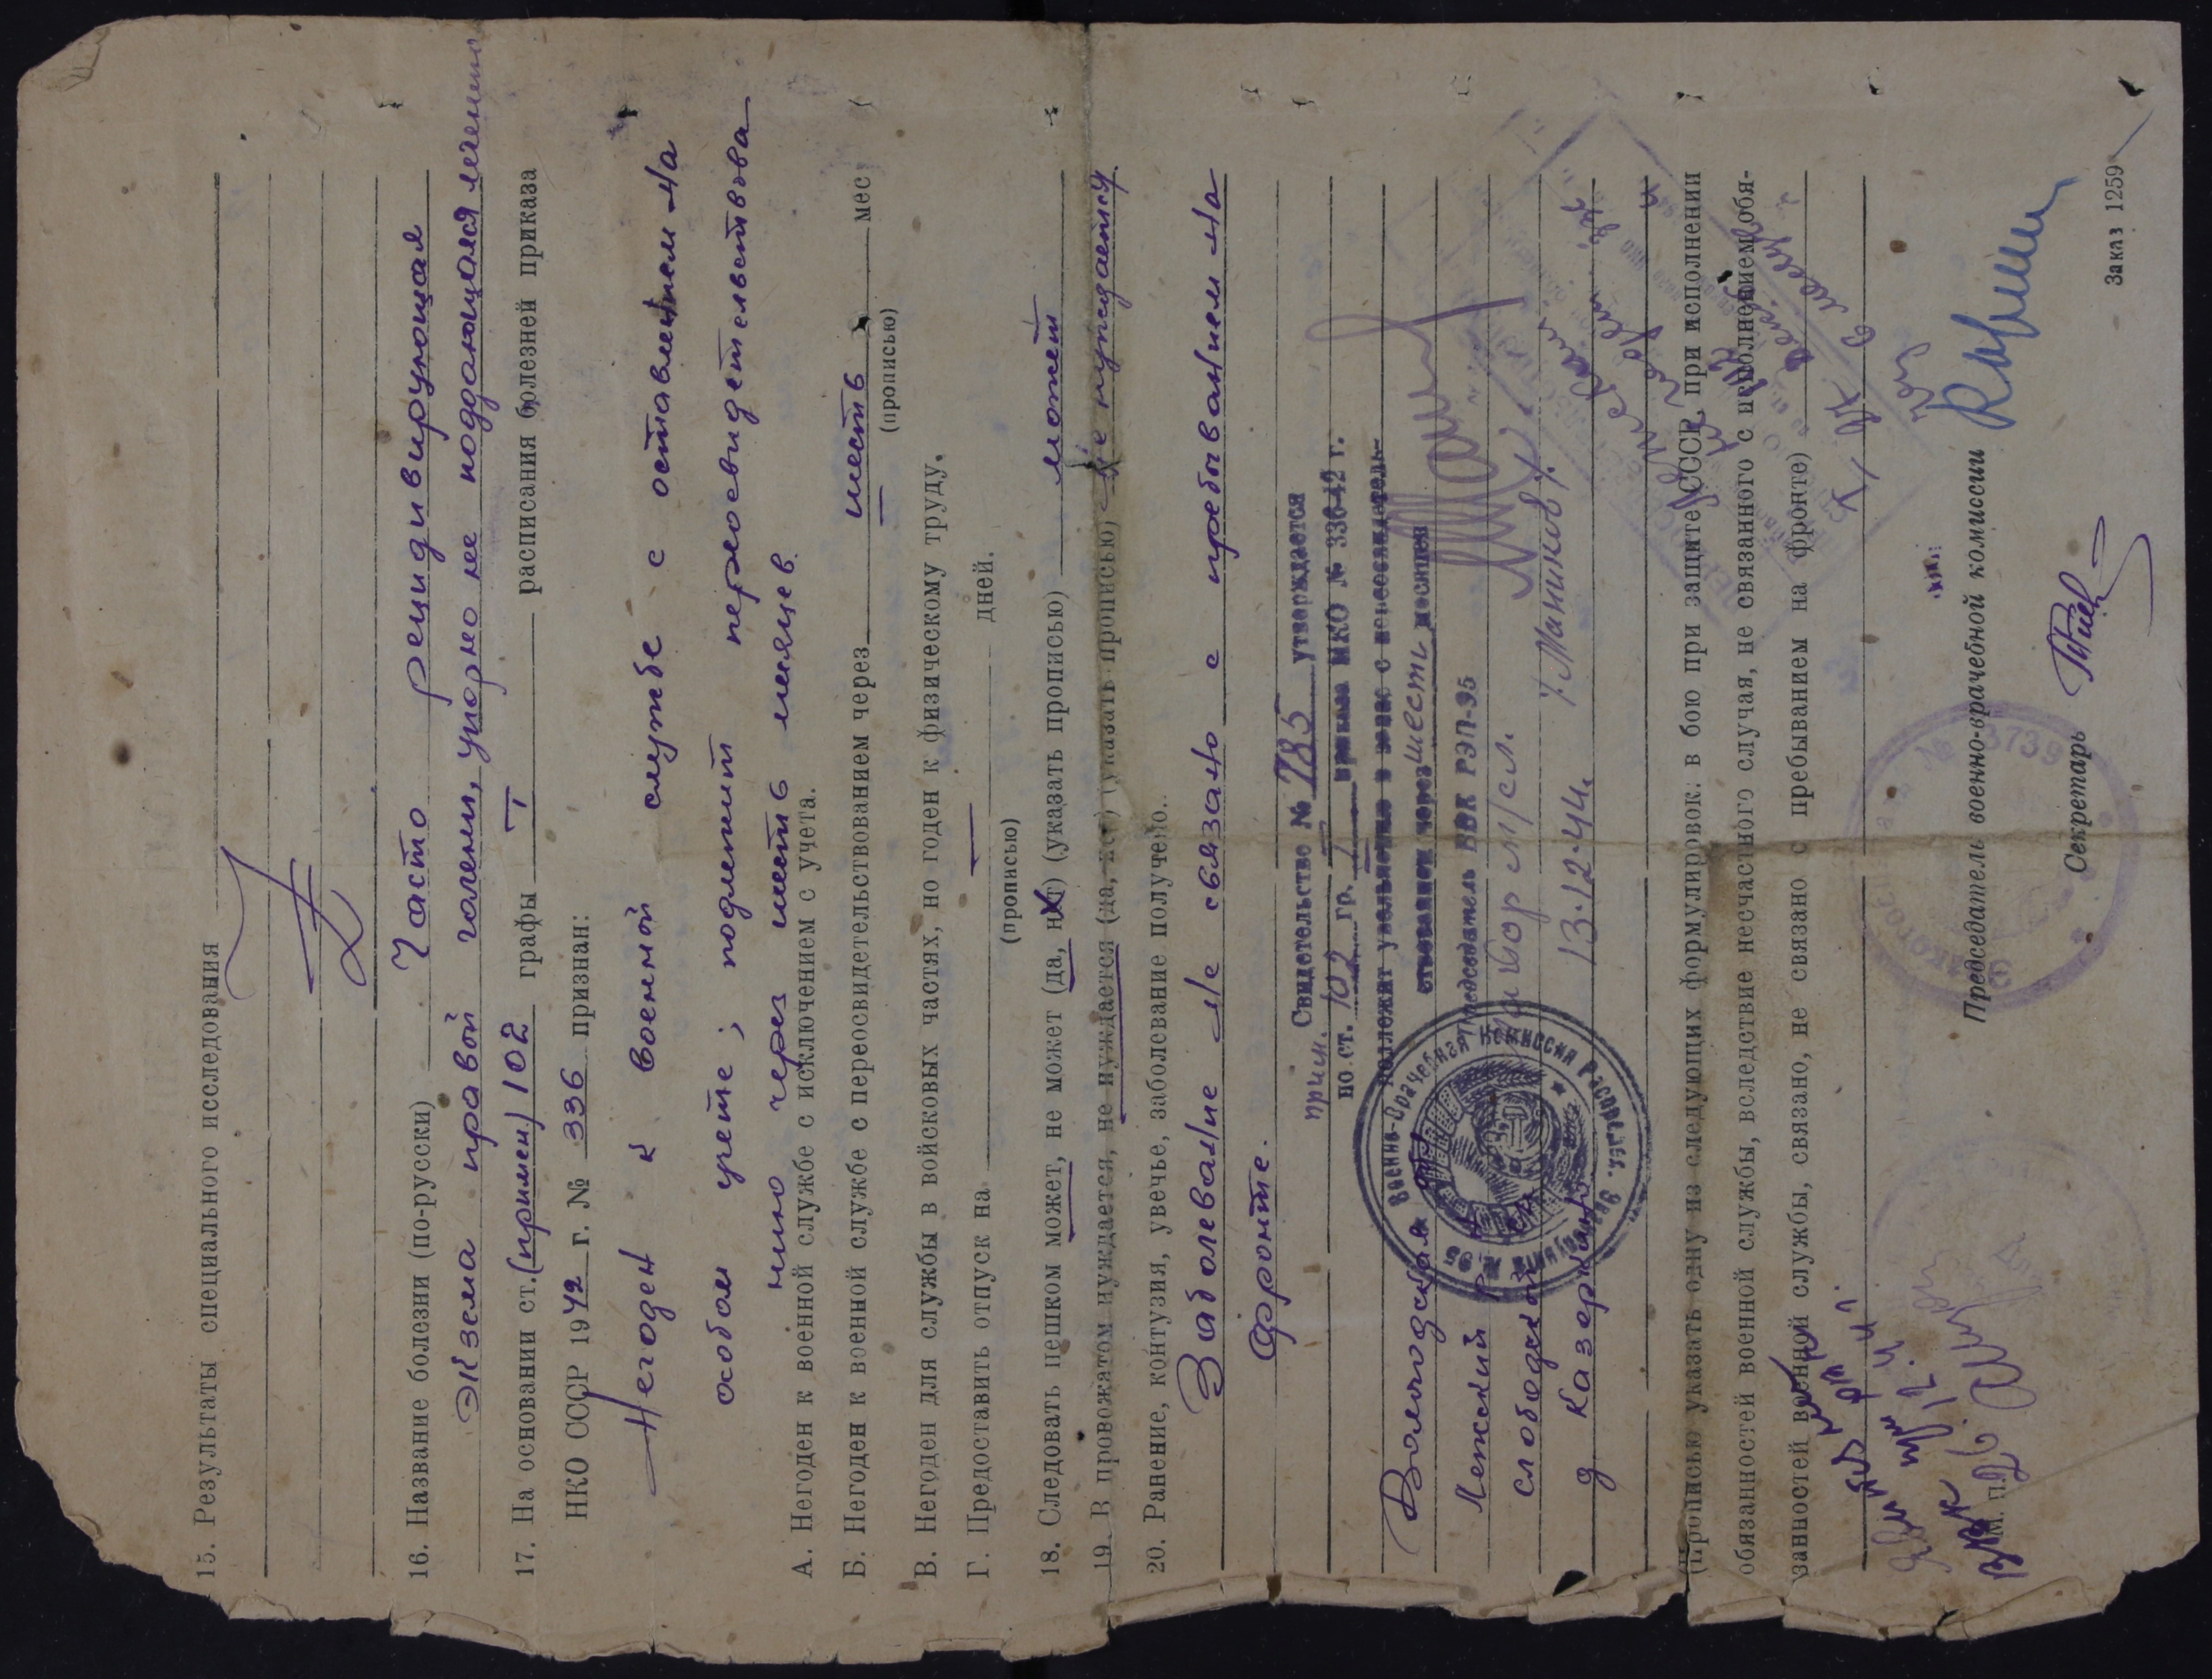 15. Результаты специального исследования
16. Название болезни (по-русски) Часто рецидивирующая
экзема правой голени, упорно не поддающаяся лечению
17. На основании ст. (примен.) 102 графы I расписания болезней приказа
НКО СССР 1942 г. № 336 признан:
Негоден к военной службе с оставлением на
особом учете; подлежит переосвидетельствова
нию через шесть месяцев.
А. Негоден к военной службе с исключением с учета.
Б. Негоден к военной службе с переосвидетельствованием через шесть мес
(прописью)
В. Негоден для службы в войсковых частях, но годен к физическому труду.
Г. Предоставить отпуск на — дней.
(прописью)
18. Следовать пешком может, не может (да, нет) (указать прописью) может
19. В провожатом нуждается, не нуждается (да, нет) (указать прописью) не нуждается
20. Ранение, контузия, увечье, заболевание получено.
Заболевание не связано с пребыванием на
фронте.
Свидетельство № 785 утверждается
прим. по ст. 102 гр. I приказа НКО № 336-42 г.
подлежит увольнению в запас с переосвидетель-
ствованием через шесть месяцев
Председатель ВВК РЭП-95
Майор м/сл. /Маников/.
13.12.44.
Военно-Врачебная Комиссия Распредел. Эвакопункта № 95
Вологодская обл
Межский р-н
слободской с/с
д Казерково
(Прописью указать одну из следующих формулировок: в бою при защите СССР, при исполнении
обязанностей военной службы, вследствие несчастного случая, не связанного с исполнением обя-
занностей военной службы, связано, не связано с пребыванием на фронте)
Председатель военно-врачебной комиссии
№ 3739
Секретарь
М. П.
Заказ 1259